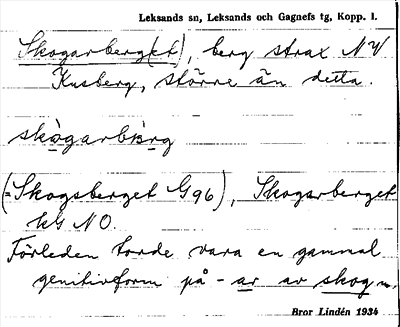 Leksands sn, Leksands och Gagnefs tg, Kopp. l.
Skogarberg(et), berg strax NV
Kusberg, större än detta.
skògarbärg
(=Skogsberget G96), Skogarberget
kG NO.
Förleden torde vara en gammal
genitivform på -ar av skog m.
Bror Lindén 1934